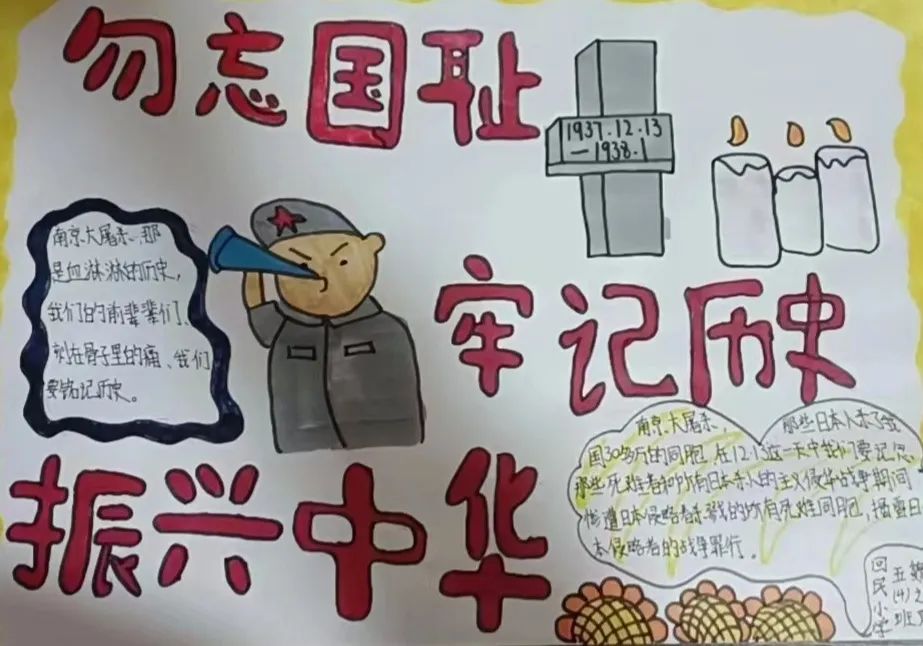 勿忘国耻
1937.12.13
—1938.1
南京大屠杀、那
是血淋淋的历史,
我们的前辈辈们、
刻在骨子里的痛、我们
要铭记历史。
牢记历史
振兴中华
南京大屠杀、那些日本人杀了
国30多万的同胞,在12.13这一天中我们要记
那些死难者和所有日本
惨遭日本侵略者杀戮的所有死难同胞,揭露日
本侵略者的战争罪行。
回民小学
五
(4)
班